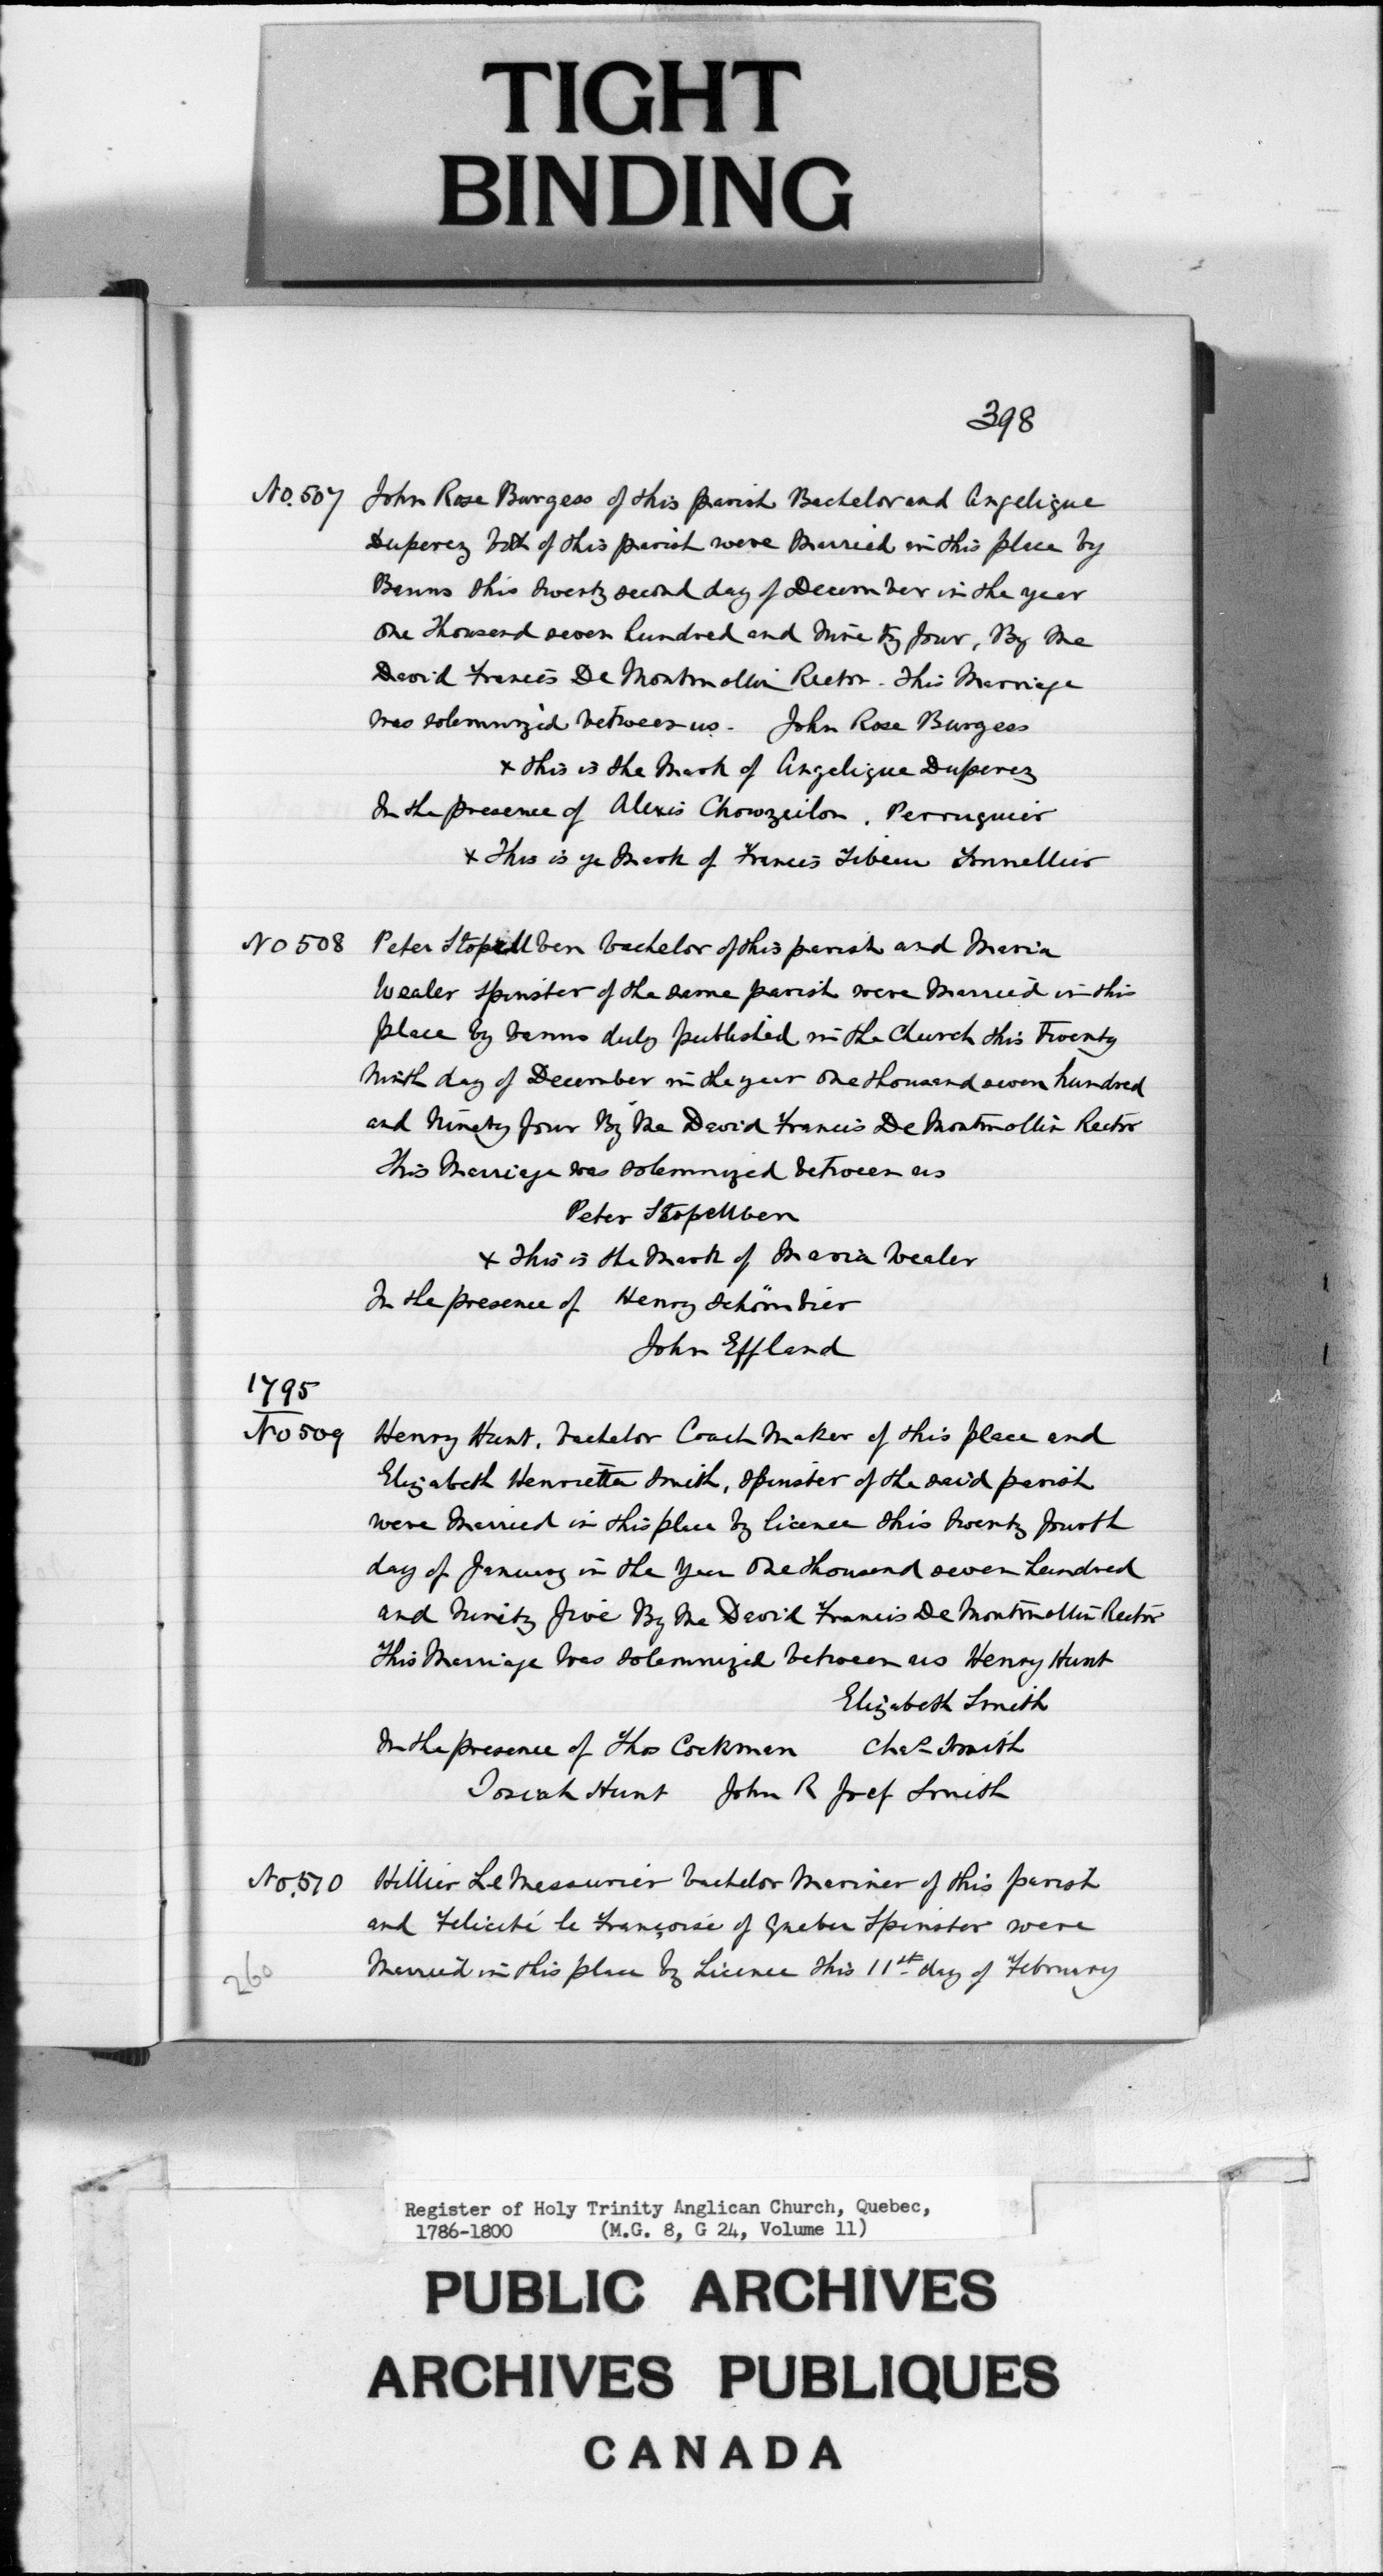 TIGHT
BINDING
398
No. 507 John Rose Burgess of this parish Bachelor and Angelique
Duperez both of this parish were Married in this place by
Banns this twenty second day of December in the year
One Thousand seven hundred and Nine ty four, By Me
David Francis De Montmollin Rector. This Marriage
was solemnized between us. John Rose Burgess
x this is the Mark of Angelique Duperez
In the presence of Alexis Chowzeilon, Perruquier
x This is ye Mark of Francis Tibeau Tonnellier
No 508 Peter Stopellben bachelor of this parish and Maria
Wealer Spinster of the same parish were Married in this
place by banns duly published in the Church this Twenty
Ninth day of December in the year One thousand seven hundred
and Ninety four By Me David Francis De Montmollin Rector
This Marriage was solemnized between us
Peter Stopellben
x This is the Mark of Maria Wealer
In the presence of Henry Schömbier
John Effland
1795
No 509 Henry Hunt, bachelor Coach Maker of this place and
Elizabeth Henrietta Smith, Spinster of the said parish
were Married in this place by licence this twenty fourth
day of January in the Year One thousand seven hundred
and Ninety five By Me David Francis De Montmollin Rector
This Marriage was solemnized between us Henry Hunt
Elizabeth Smith
In the presence of Thos Cockman Chas Smith
Josiah Hunt John R Josf Smith
No. 510 Hillier Le Messurier bachelor Mariner of this parish
and Felicité le Françoise of Quebec Spinster were
Married in this place by Licence this 11th day of February
260
Register of Holy Trinity Anglican Church, Quebec,
1786-1800 (M.G. 8, G 24, Volume 11)
PUBLIC ARCHIVES
ARCHIVES PUBLIQUES
CANADA